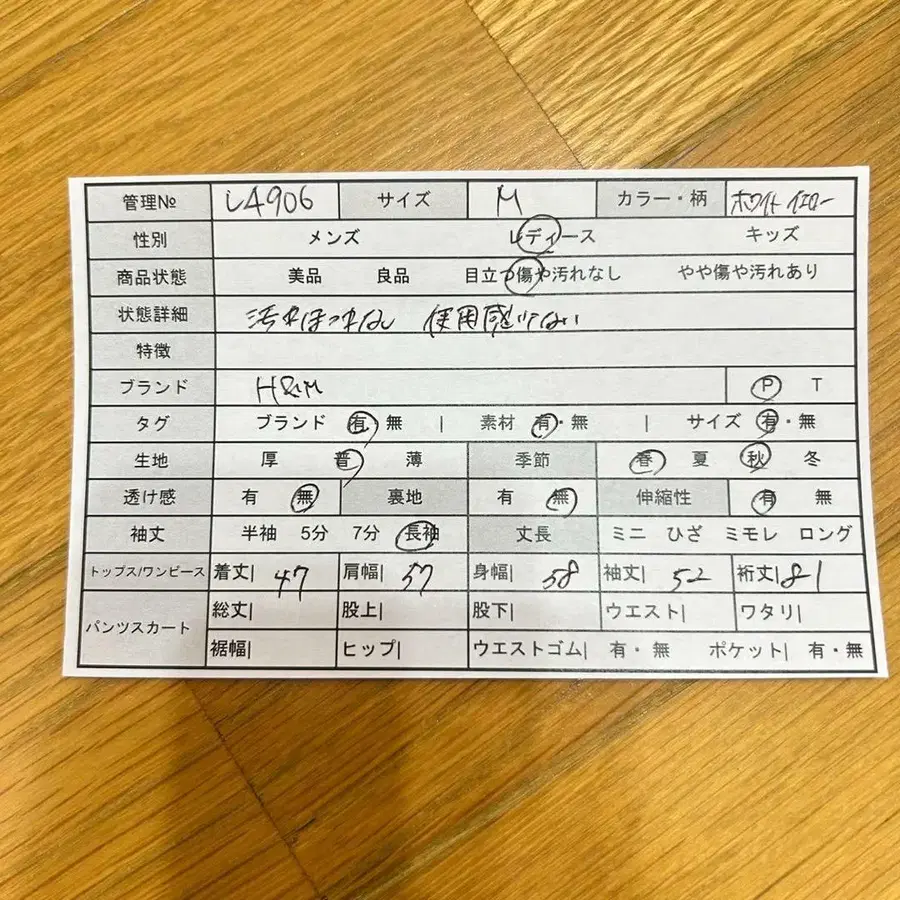 管理№ L4906 サイズ M カラー・柄 ホワイト イエロー
性別 メンズ レディース キッズ
商品状態 美品 良品 目立つ傷や汚れなし やや傷や汚れあり
状態詳細 汚れほつれなし 使用感少ない
特徴
ブランド H&M P T
タグ ブランド 有・無 | 素材 有・無 | サイズ 有・無
生地 厚 普 薄 季節 春 夏 秋 冬
透け感 有 無 裏地 有 無 伸縮性 有 無
袖丈 半袖 5分 7分 長袖 丈長 ミニ ひざ ミモレ ロング
トップス/ワンピース 着丈| 47 肩幅| 57 身幅| 58 袖丈| 52 裄丈| 81
パンツスカート 総丈| 股上| 股下| ウエスト| ワタリ|
裾幅| ヒップ| ウエストゴム| 有・無 ポケット| 有・無